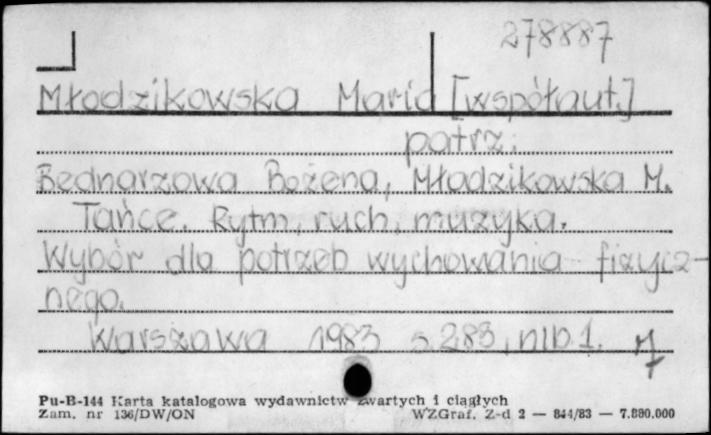 278887
Młodzikowska Maria [współaut.]
patrz:
Bednarzowa Bożena, Młodzikowska M.
Tańce. Rytm, ruch, muzyka.
Wybór dla potrzeb wychowania fizycz-
nego.
Warszawa 1983 s. 283, nlb 1.
Pu-B-144 Karta katalogowa wydawnictw zwartych i ciągłych
Zam. nr 136/DW/ON WZGraf. Z-d 2 — 844/83 — 7.880.000